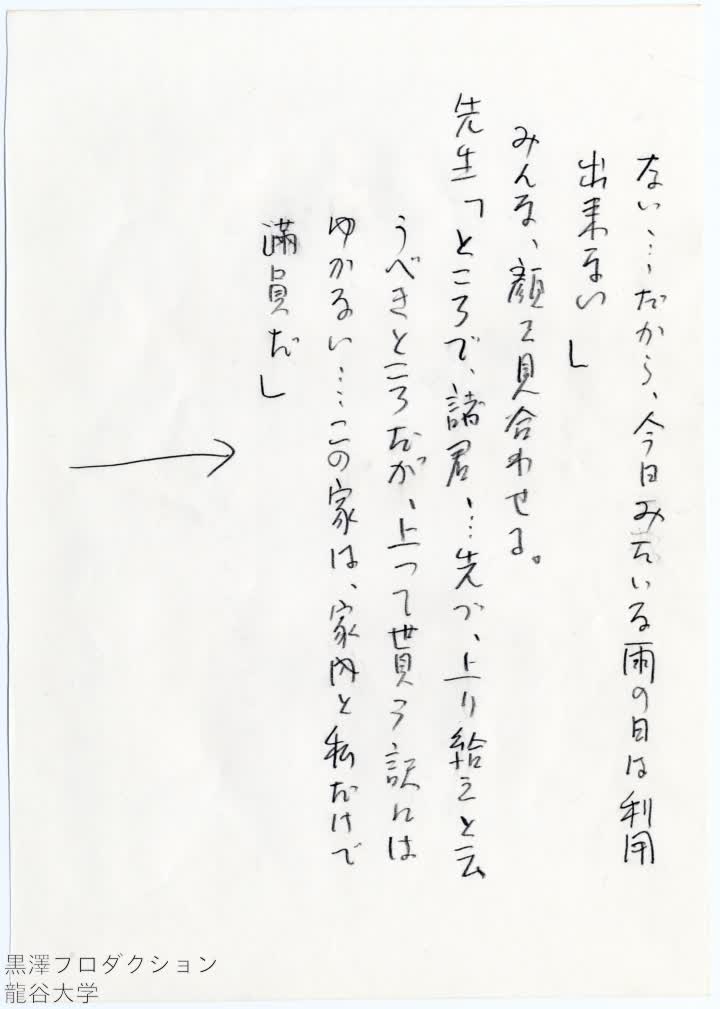 ない…だから、今日みたいな雨の日は利用
出来ない」
みんな、顔を見合わせる。
先生「ところで、諸君、…先づ、上り給えと云
うべきところだが、上って貰う訳には
ゆかない…この家は、家内と私だけで
満員だ」
黒澤プロダクション
龍谷大学